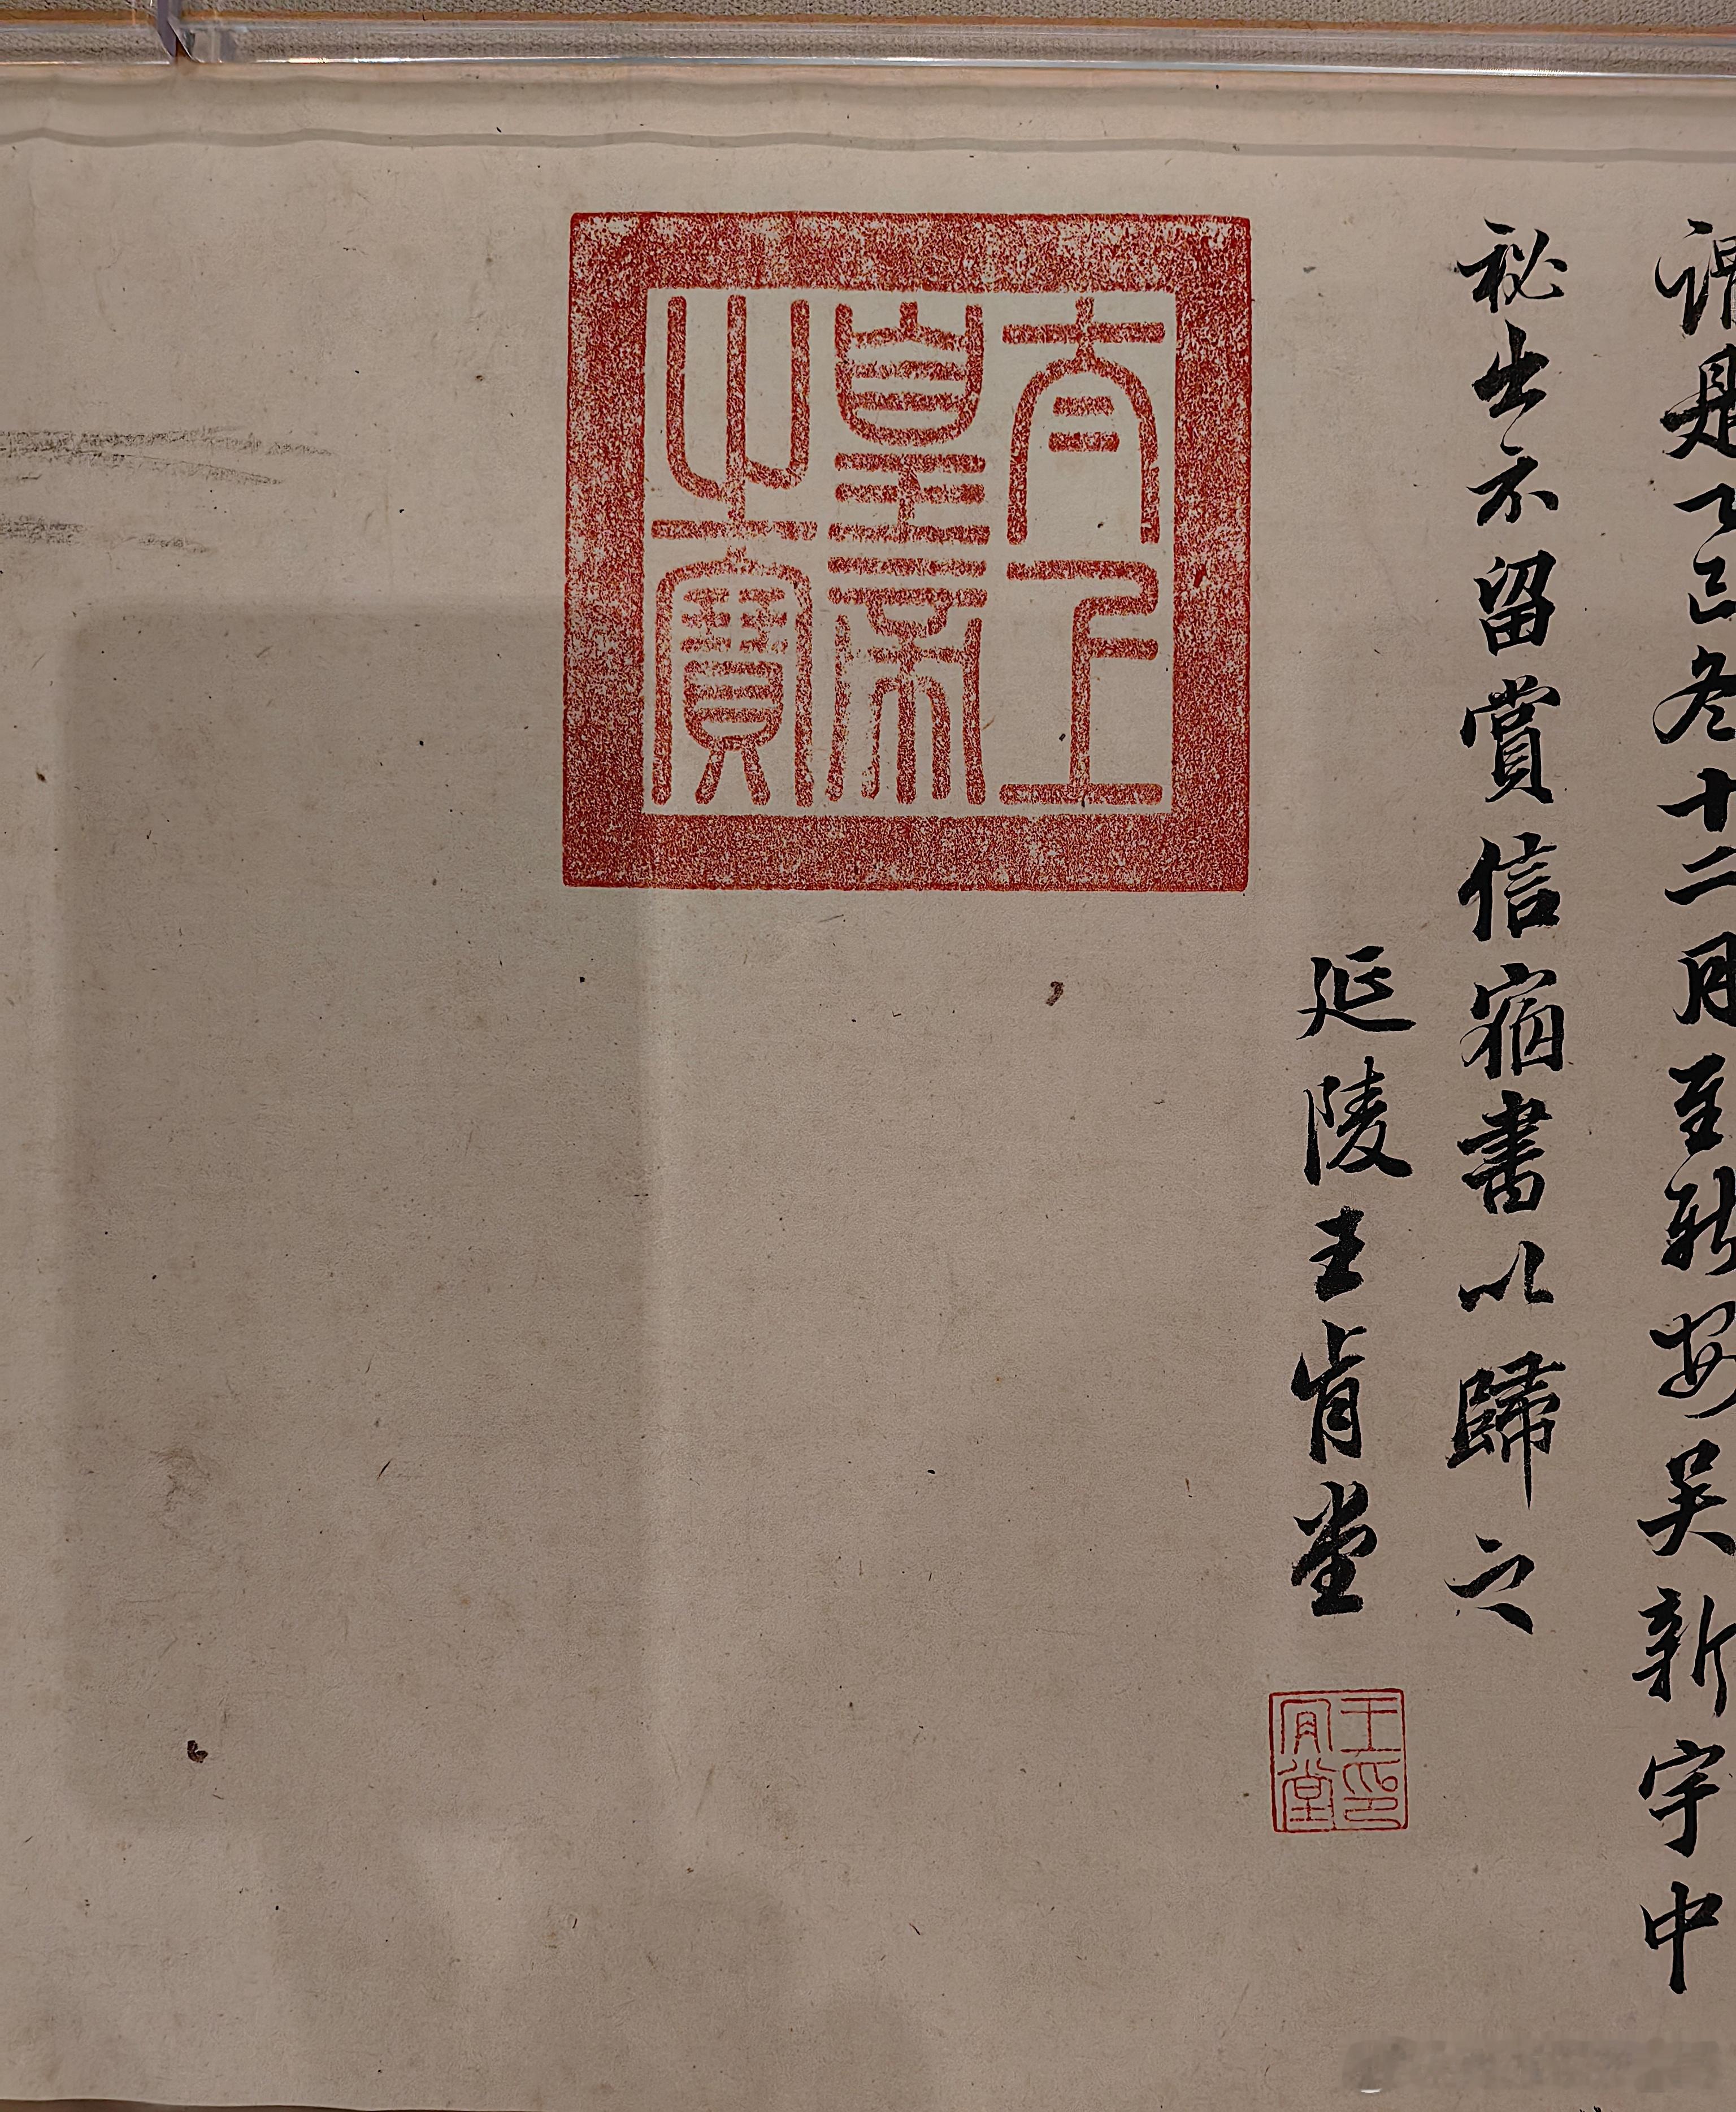 謂是乙巳冬十二月至新安吴新宇中
秘出示留賞信宿書以歸之
延陵王肯堂
王肯堂印
太上皇帝之寶